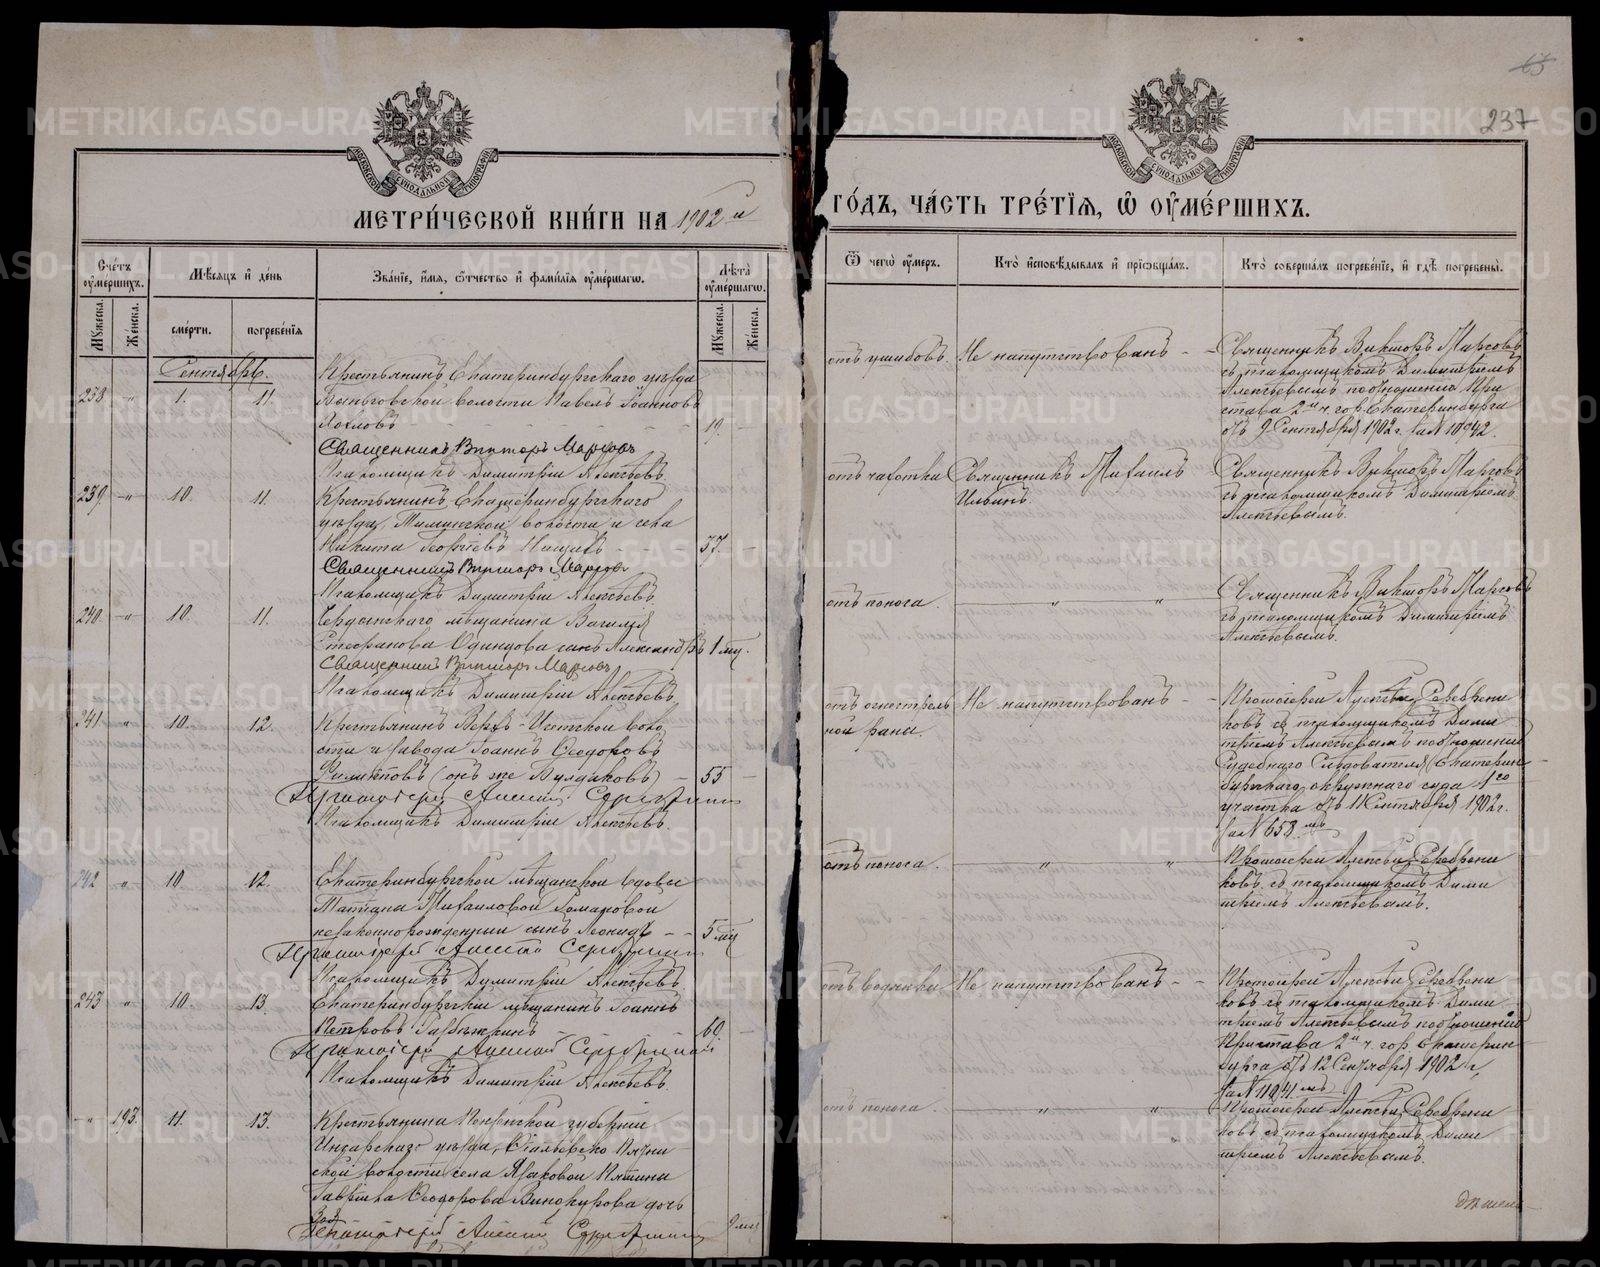 63
237
МЕТРИ́ЧЕСКОЙ КНИ́ГИ НА 1902й
ГО́ДЪ, ЧА́СТЬ ТРЕ́ТІЯ, Ѡ ОУМЕ́РШИХЪ.
Сче́тъ оуме́ршихъ.
Мꙋжеска.
Же́нска.
Мѣ́сяцъ и де́нь
сме́рти.
погребе́нія
Зва́ніе, и́мя, о́тчество и фами́лія оуме́ршагѡ.
Лѣта̀ оуме́ршагѡ.
Мꙋжеска.
Же́нска.
Ѿ чегѡ̀ оу́меръ.
Кто̀ исповѣ́дывалъ и пріѡбща́лъ.
Кто̀ соверша́лъ погребе́ніе, и гдѣ̀ погребены̀.
Сентябрь.
238 „ 1. 11.
Крестьянинъ Екатеринбургскаго уѣзда
Быньговской волости Павелъ Іоанновъ
19.
Священникъ Викторъ Марковъ
Псаломщикъ Димитрій Алексѣевъ.
отъ ушибовъ. Не напутствованъ
Священникъ Викторъ Марковъ
съ псаломщикомъ Димитріемъ
Алексѣевымъ по отношенію При
става 2й ч. гор. Екатеринбурга
отъ 9 Сентября 1902 г. за № 10942.
239. „ 10. 11.
Крестьянинъ Екатеринбургскаго
уѣзда, волости и села
Никита Георгіевъ 37.
Священникъ Викторъ Марковъ
Псаломщикъ Димитрій Алексѣевъ.
отъ чахотки Священникъ Михаилъ
Ильинъ.
Священникъ Викторъ Марковъ
съ псаломщикомъ Димитріемъ
Алексѣевымъ.
240. „ 10. 11.
Чердынскаго мѣщанина Василія
Стефанова Одинцова сынъ Александръ 1 мц.
Священникъ Викторъ Марковъ
Псаломщикъ Димитрій Алексѣевъ
отъ поноса. „ „
Священникъ Викторъ Марковъ
съ псаломщикомъ Димитріемъ
Алексѣевымъ.
241 „ 10. 12.
Крестьянинъ Верхъ-Исетской воло
сти и завода Іоаннъ Ѳеодоровъ
Филиповъ (онъ же Булдаковъ) 55
Протоіерей Алексій Серебрениковъ
Псаломщикъ Димитрій Алексѣевъ.
отъ огнестрѣль
ной раны. Не напутствованъ
Протоіерей Алексѣй Серебрени
ковъ съ псаломщикомъ Дими
тріемъ Алексѣевымъ по отношенію
Судебнаго Слѣдователя Екатерин
бургскаго окружнаго суда 1го
участка отъ 11 Сентября 1902 г.
за № 658мъ
242 „ 10 12.
Екатеринбургской мѣщанской вдовы
Татіаны Михаиловой Романовой
незаконнорожденный сынъ Леонидъ 5 мц
Протоіерей Алексій Серебрениковъ
Псаломщикъ Димитрій Алексѣевъ
отъ поноса. „ „
Протоіерей Алексѣй Серебрени
ковъ съ псаломщикомъ Дими
тріемъ Алексѣевымъ.
243 „ 10. 13.
Екатеринбургскій мѣщанинъ Іоаннъ
Петровъ 60.
Протоіерей Алексій Серебрениковъ
Псаломщикъ Димитрій Алексѣевъ.
отъ водянки Не напутствованъ
Протоіерей Алексѣй Серебрени
ковъ съ псаломщикомъ Дими
тріемъ Алексѣевымъ по отношенію
Пристава 2й ч. гор. Екатерин
бурга отъ 12 Сентября 1902 г.
за № 11041мъ
„ 193. 11. 13.
Крестьянина Пензенской губерніи
Инсарскаго уѣзда,
ской волости села
Ѳеодорова Винокурова дочь
Зоя 9 мц
Протоіерей Алексій Серебрениковъ
отъ поноса. „ „
Протоіерей Алексѣй Серебрени
ковъ съ псаломщикомъ Дими
тріемъ Алексѣевымъ.
METRIKI.GASO-URAL.RU